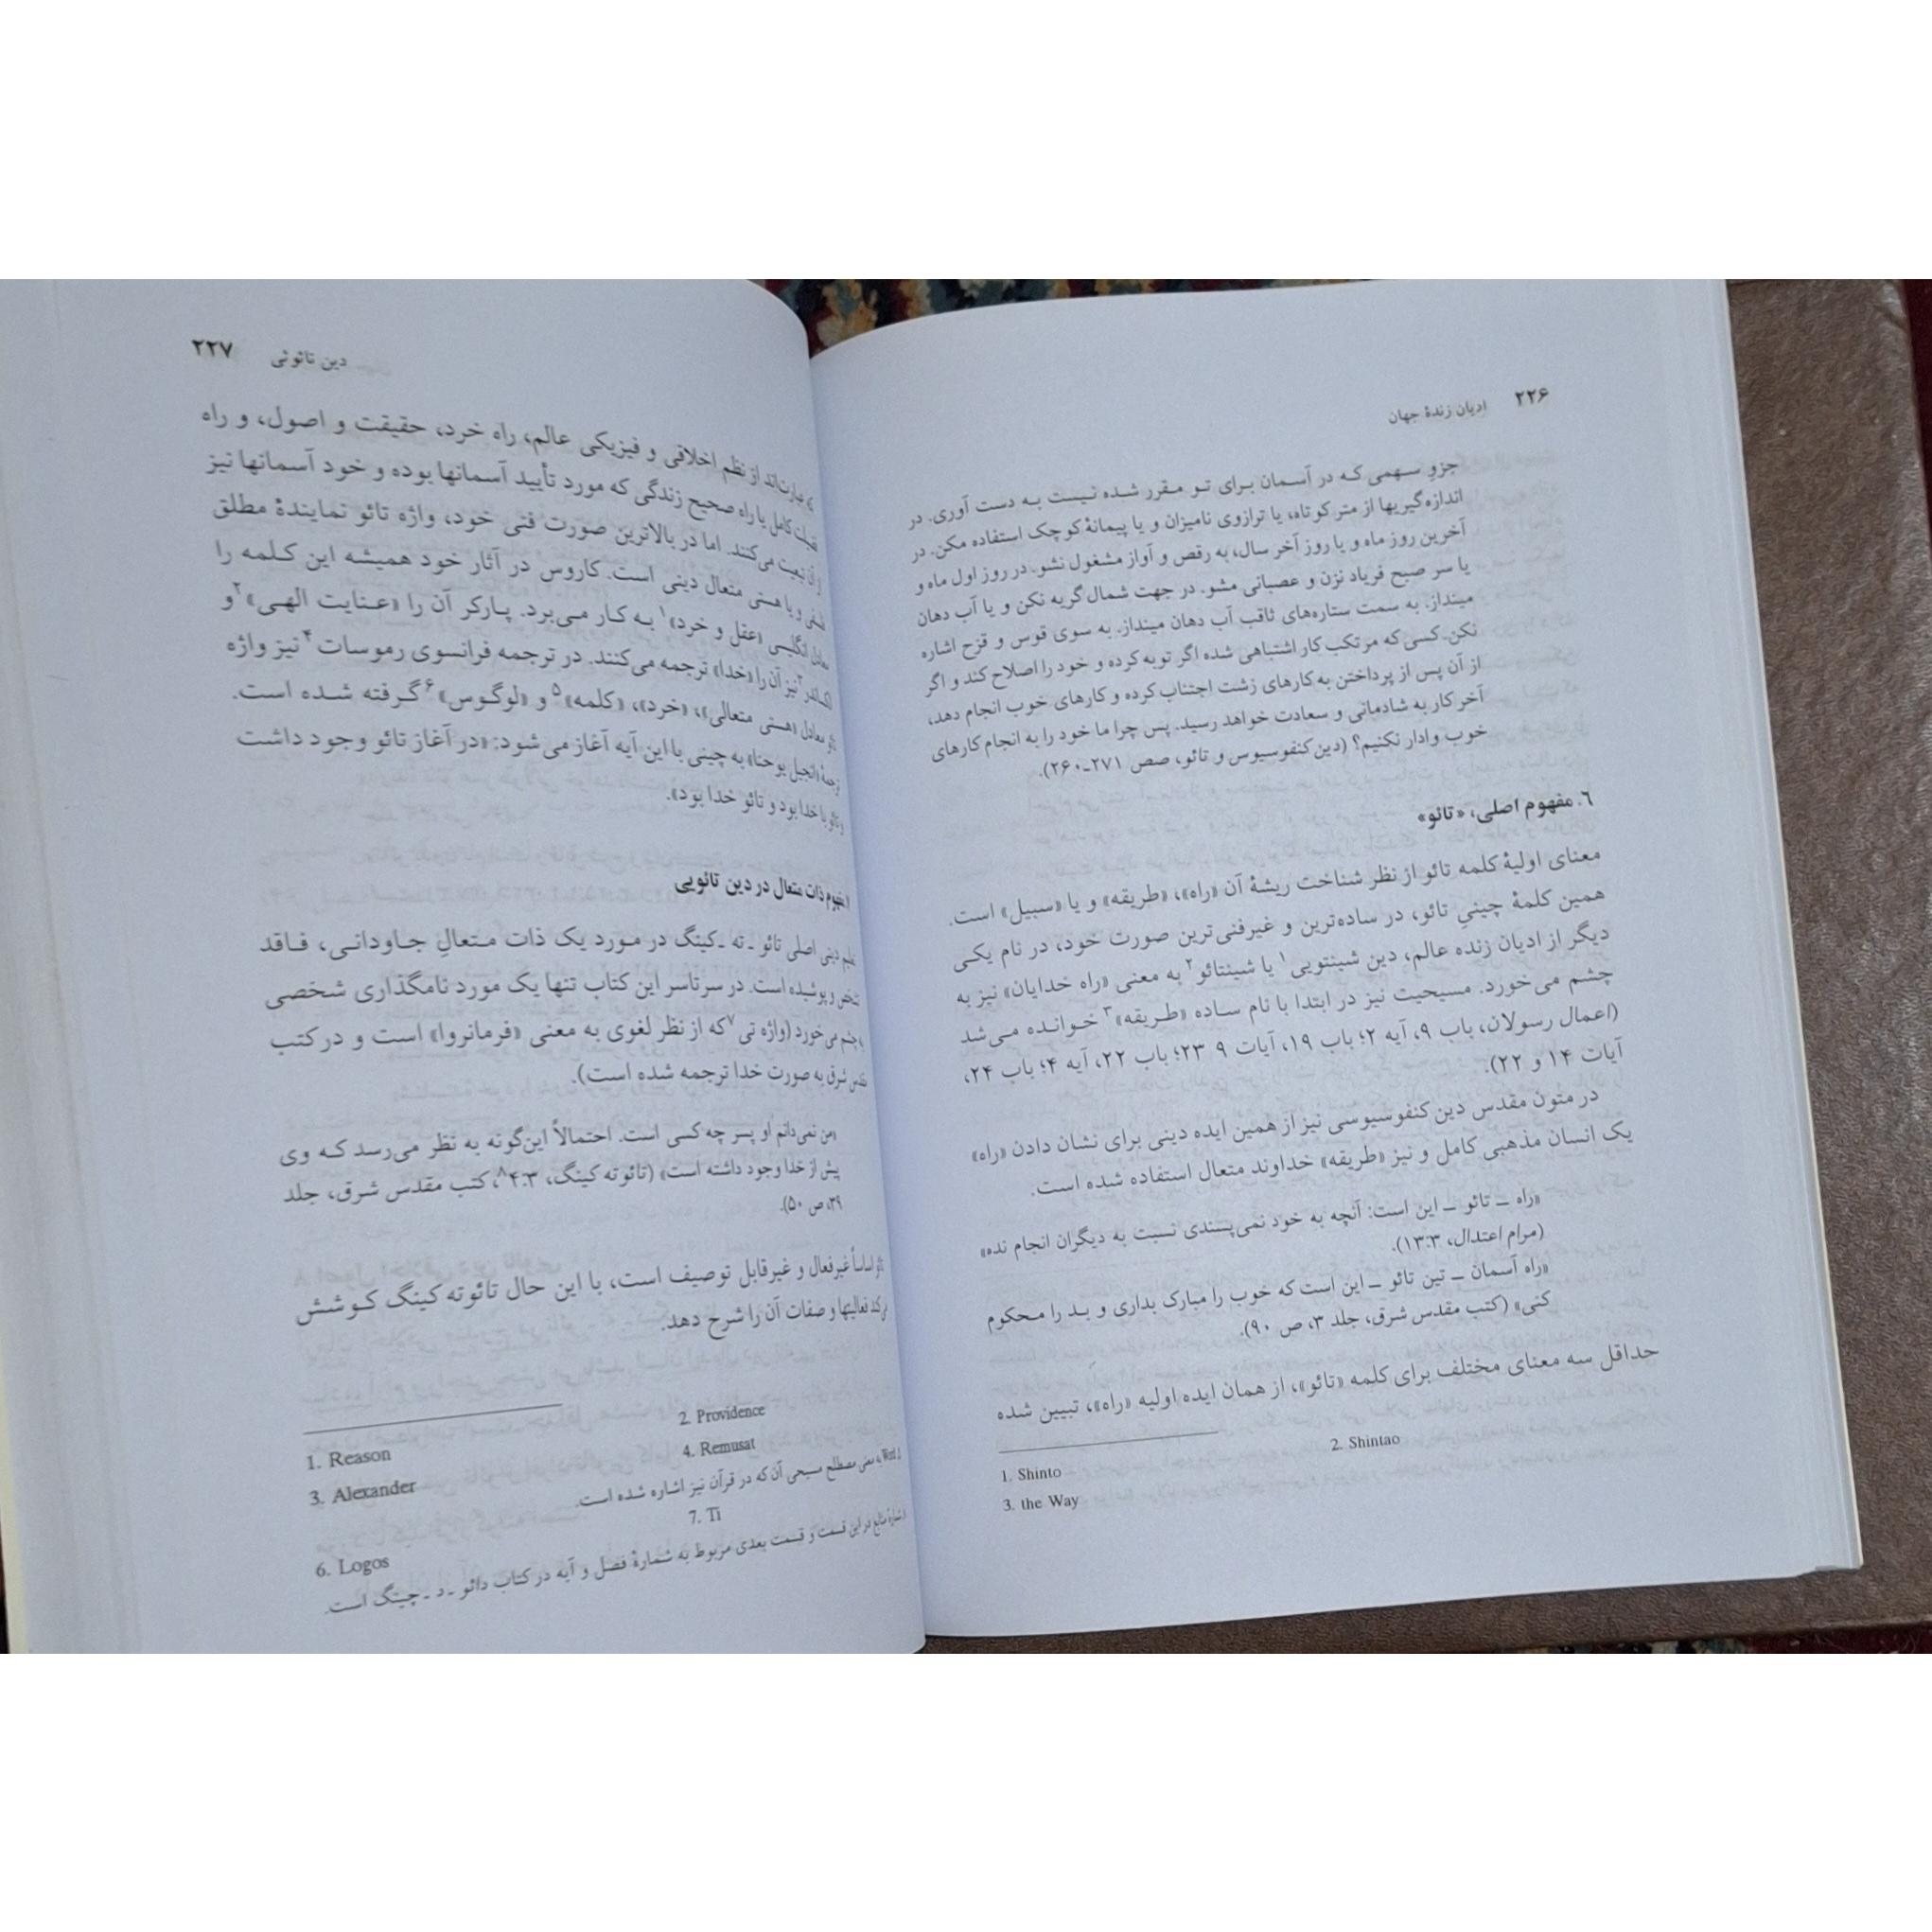 ۲۲۶ ادیان زندهٔ جهان
جزوِ سهمی که در آسمان برای تو مقرر شده نیست به دست آوری. در
اندازه‌گیریها از متر کوتاه، یا ترازوی نامیزان و یا پیمانهٔ کوچک استفاده مکن. در
آخرین روز ماه و یا روز آخر سال، به رقص و آواز مشغول نشو. در روز اول ماه و
یا سر صبح فریاد نزن و عصبانی مشو. در جهت شمال گریه نکن و یا آب دهان
مینداز. به سمت ستاره‌های ثاقب آب دهان مینداز. به سوی قوس و قزح اشاره
نکن. کسی که مرتکب کار اشتباهی شده اگر توبه کرده و خود را اصلاح کند و اگر
از آن پس از پرداختن به کارهای زشت اجتناب کرده و کارهای خوب انجام دهد،
آخر کار به شادمانی و سعادت خواهد رسید. پس چرا ما خود را به انجام کارهای
خوب وادار نکنیم؟ (دین کنفوسیوس و تائو، صص ۲۷۱-۲۶۰).
۶. مفهوم اصلی، «تائو»
معنای اولیهٔ کلمه تائو از نظر شناخت ریشهٔ آن «راه»، «طریقه» و یا «سبیل» است.
همین کلمهٔ چینیِ تائو، در ساده‌ترین و غیرفنی‌ترین صورت خود، در نام یکی
دیگر از ادیان زنده عالم، دین شینتویی۱ یا شینتائو۲ به معنی «راه خدایان» نیز به
چشم می‌خورد. مسیحیت نیز در ابتدا با نام ساده «طریقه»۳ خوانده می‌شد
(اعمال رسولان، باب ۹، آیه ۲؛ باب ۱۹، آیات ۹ ۲۳؛ باب ۲۲، آیه ۴؛ باب ۲۴،
آیات ۱۴ و ۲۲).
در متون مقدس دین کنفوسیوسی نیز از همین ایده دینی برای نشان دادن «راه»
یک انسان مذهبی کامل و نیز «طریقه» خداوند متعال استفاده شده است.
«راه – تائو – این است: آنچه به خود نمی‌پسندی نسبت به دیگران انجام نده»
(مرام اعتدال، ۱۳:۳).
«راه آسمان – تین تائو – این است که خوب را مبارک بداری و بد را محکوم
کنی» (کتب مقدس شرق، جلد ۳، ص ۹۰).
حداقل سه معنای مختلف برای کلمه «تائو»، از همان ایده اولیه «راه»، تبیین شده
1. Shinto 2. Shintao
3. the Way
دین تائوئی ۲۲۷
عبارت‌اند از نظم اخلاقی و فیزیکی عالم، راه خرد، حقیقت و اصول، و راه
کامل یا راه صحیح زندگی که مورد تأیید آسمانها بوده و خود آسمانها نیز
از آن تبعیت می‌کنند. اما در بالاترین صورت فنی خود، واژه تائو نمایندهٔ مطلق
و یا هستی متعال دینی است. کاروس در آثار خود همیشه این کلمه را
معادل انگلیسی «عقل و خرد»۱ به کار می‌برد. پارکر آن را «عنایت الهی»۲ و
۳ نیز آن را «خدا» ترجمه می‌کنند. در ترجمه فرانسوی رموسات۴ نیز واژه
تائو معادل «هستی متعالی»، «خرد»، «کلمه»۵ و «لوگوس»۶ گرفته شده است.
ترجمهٔ «انجیل یوحنا» به چینی با این آیه آغاز می‌شود: «در آغاز تائو وجود داشت
و تائو با خدا بود و تائو خدا بود».
مفهوم ذات متعال در دین تائویی
دینی اصلی تائو - ته - کینگ در مورد یک ذات متعالِ جاودانی، فاقد
تشخص و پوشیده است. در سرتاسر این کتاب تنها یک مورد نامگذاری شخصی
چشم می‌خورد (واژه تی۷ که از نظر لغوی به معنی «فرمانروا» است و در کتب
مقدس شرق به صورت خدا ترجمه شده است).
«من نمی‌دانم او پسر چه کسی است. احتمالاً این‌گونه به نظر می‌رسد که وی
پیش از خدا وجود داشته است» (تائوته کینگ، ۴:۳۸، کتب مقدس شرق، جلد
۳۹، ص ۵۰).
تائو اساساً غیرفعال و غیرقابل توصیف است، با این حال تائوته کینگ کوشش
می‌کند فعالیتها و صفات آن را شرح دهد.
1. Reason 2. Providence
3. Alexander 4. Remusat
Word به معنی مصطلح مسیحی آن که در قرآن نیز اشاره شده است.
6. Logos 7. Ti
شمارهٔ منابع در این قسمت و قسمت بعدی مربوط به شمارهٔ فصل و آیه در کتاب دائو - د - چینگ است.